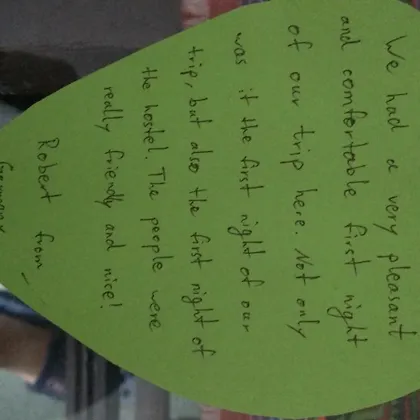 We had a very pleasant
and comfortable first night
of our trip here. Not only
was it the first night of our
trip, but also the first night of
the hostel. The people were
really friendly and nice!
Robert from
Germany